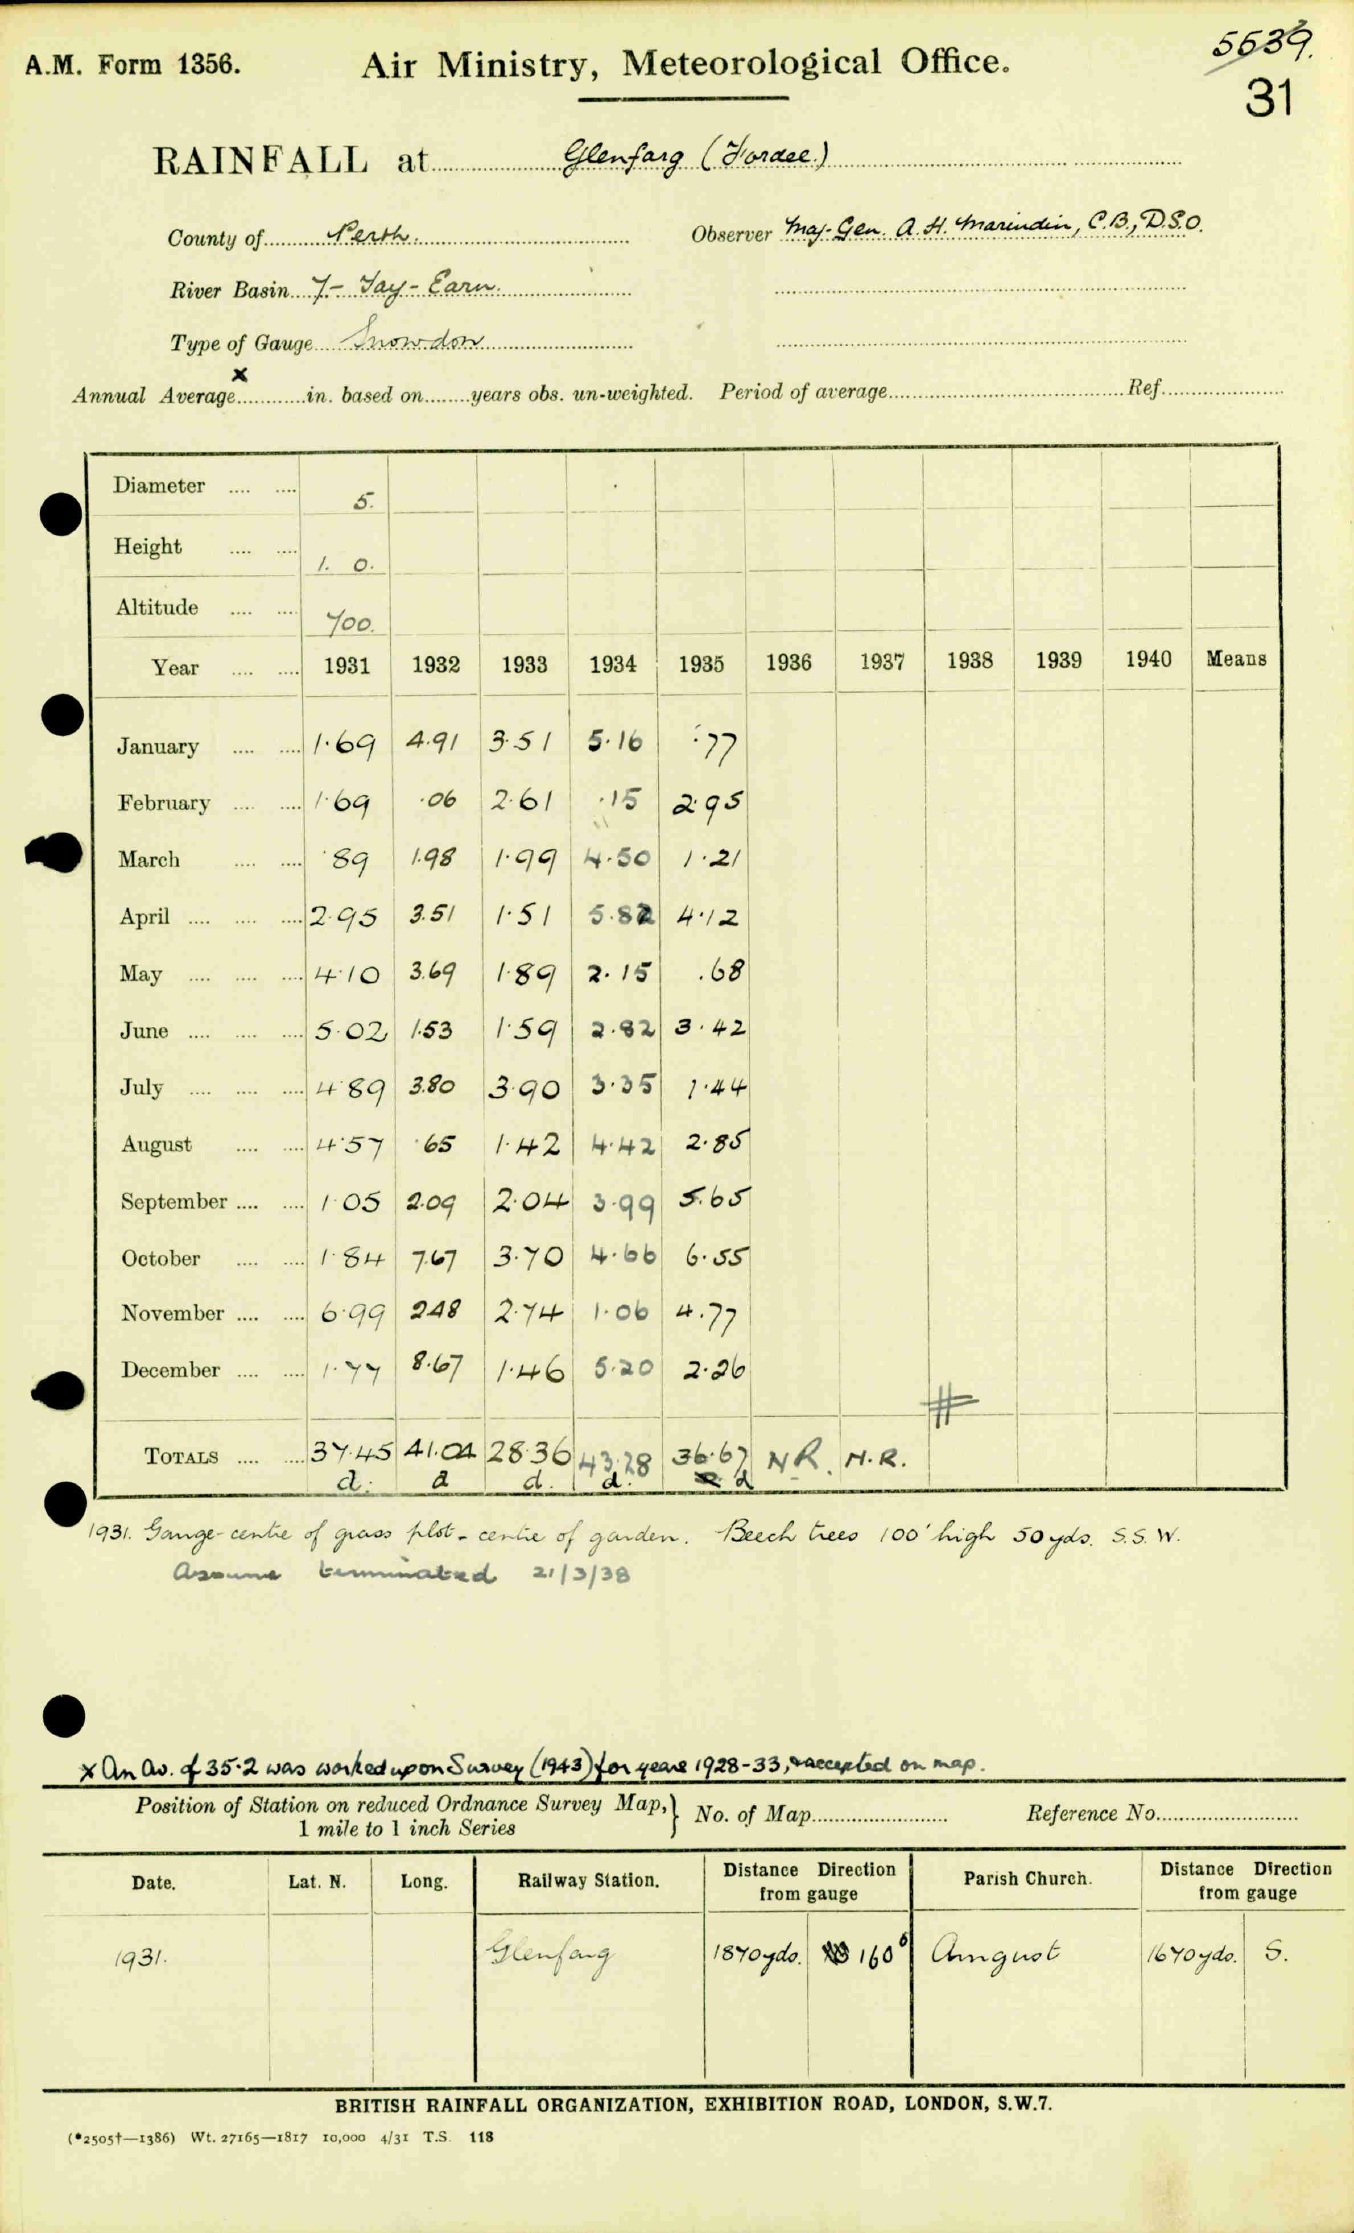 A.M. Form 1356.
Air Ministry, Meteorological Office.
5639.
31
RAINFALL at Glenfarg (Fordel.)
County of Perth. Observer Maj-Gen. A. H. Marindin, C.B., D.S.O.
River Basin 7- Tay - Earn.
Type of Gauge Snowdon
Annual Average x in. based on years obs. un-weighted. Period of average Ref.
Diameter .... .... 5.
Height .... .... 1. 0.
Altitude .... .... 700.
Year .... .... 1931 1932 1933 1934 1935 1936 1937 1938 1939 1940 Means
January .... .... 1.69 4.91 3.51 5.16 .77
February .... .... 1.69 .06 2.61 .15 2.95
March .... .... .89 1.98 1.99 4.50 1.21
April .... .... .... 2.95 3.51 1.51 5.82 4.12
May .... .... .... 4.10 3.69 1.89 2.15 .68
June .... .... .... 5.02 1.53 1.59 2.82 3.42
July .... .... .... 4.89 3.80 3.90 3.35 1.44
August .... .... 4.57 .65 1.42 4.42 2.85
September .... .... 1.05 2.09 2.04 3.99 5.65
October .... .... 1.84 7.67 3.70 4.66 6.55
November .... .... 6.99 2.48 2.74 1.06 4.77
December .... .... 1.77 8.67 1.46 5.20 2.26
#
TOTALS .... .... 37.45 41.04 28.36 43.28 36.67 N.R. N.R.
d. d d. d. d
1931. Gauge - centre of grass plot - centre of garden. Beech trees 100' high 50 yds. S.S.W.
Assume terminated 21/3/38
x An Av. of 35.2 was worked upon Survey (1943) for years 1928-33, & accepted on map.
Position of Station on reduced Ordnance Survey Map, } No. of Map Reference No.
1 mile to 1 inch Series
Date. Lat. N. Long. Railway Station. Distance Direction from gauge Parish Church. Distance Direction from gauge
1931. Glenfarg 1870 yds. 160° Arngust 1670 yds. S.
BRITISH RAINFALL ORGANIZATION, EXHIBITION ROAD, LONDON, S.W.7.
(*2505†—1386) Wt. 27165—1817 10,000 4/31 T.S. 118